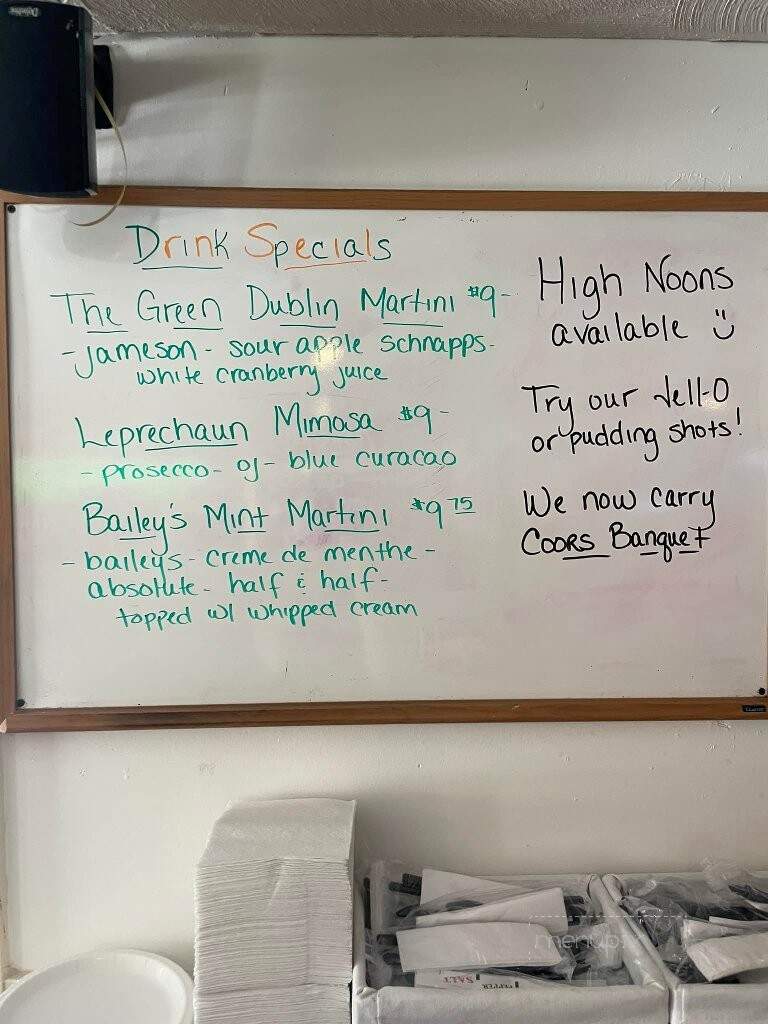 Drink Specials
The Green Dublin Martini $9-
- Jameson - sour apple schnapps -
white cranberry juice
Leprechaun Mimosa $9-
- prosecco - oj - blue curacao
Bailey's Mint Martini $9 75
- baileys - creme de menthe -
absolute - half & half -
topped w/ whipped cream
High Noons
available
Try our Jell-O
or pudding shots!
We now carry
Coors Banquet
SALT
PEPPER
menupix